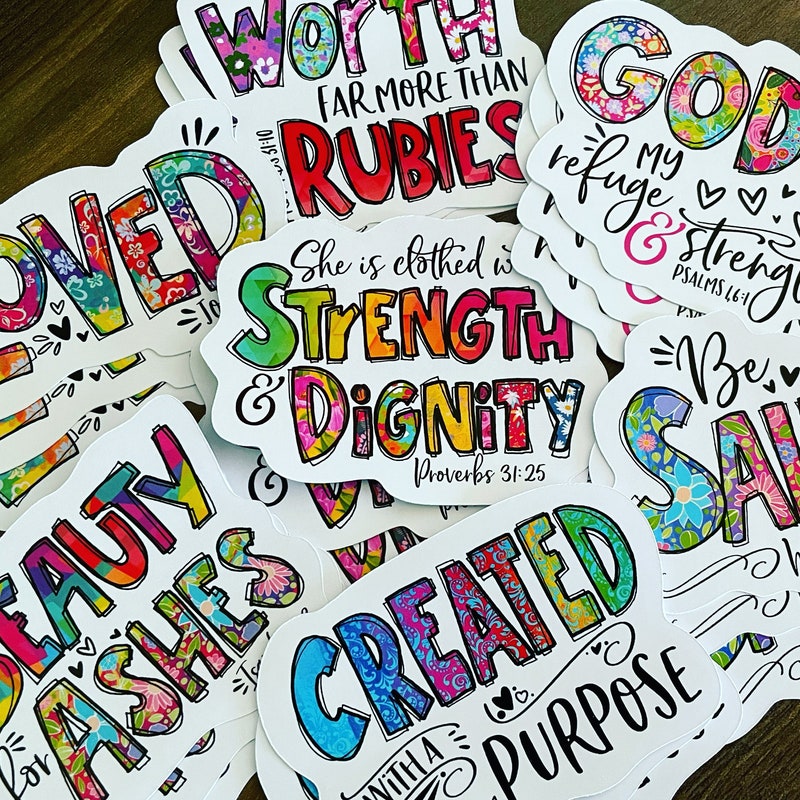 WORTH
FAR MORE THAN
RUBIES
GOD
MY
refuge
& strength
PSALMS 46:1
OVED
She is clothed w
STRENGTH
& DIGNITY
Proverbs 31:25
Be
SAL
BEAUTY
for ASHES
CREATED
WITH A
PURPOSE